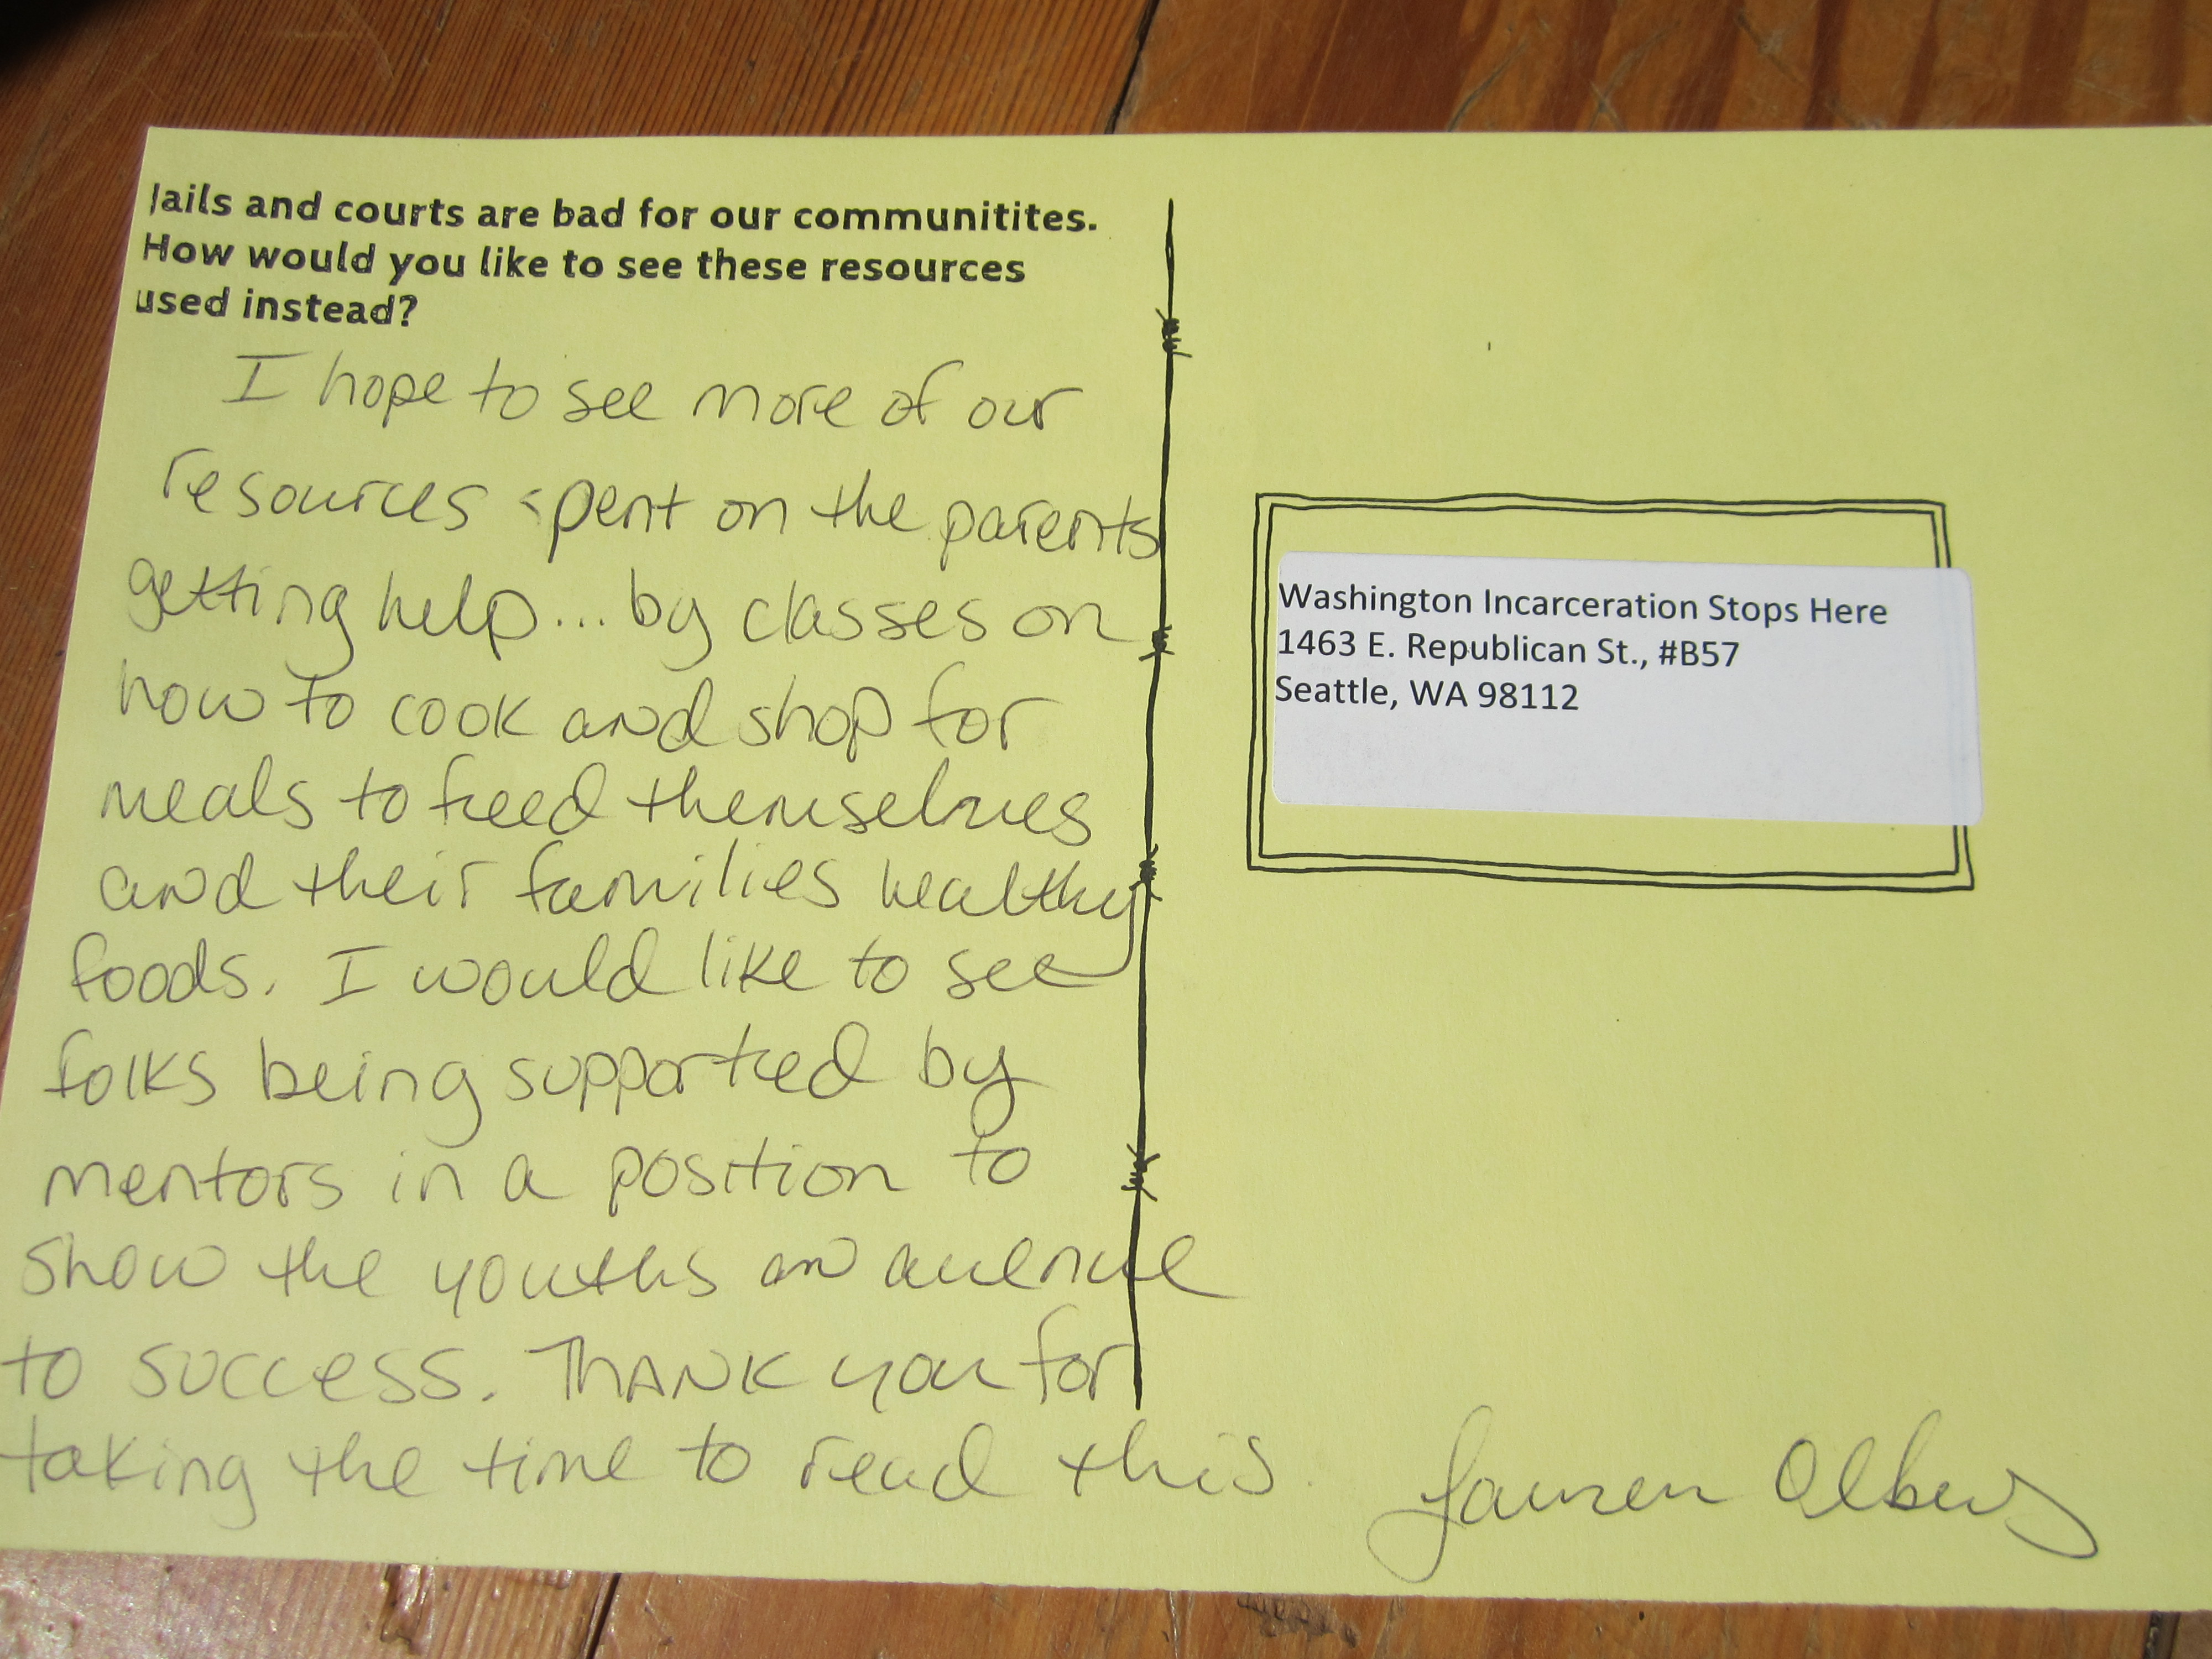 Jails and courts are bad for our communitites.
How would you like to see these resources
used instead?
I hope to see more of our
resources spent on the parents
getting help... by classes on
how to cook and shop for
meals to feed themselves
and their families healthy
foods. I would like to see
folks being supported by
mentors in a position to
show the youths an avenue
to success. THANK you for
taking the time to read this.
Lauren Albers
Washington Incarceration Stops Here
1463 E. Republican St., #B57
Seattle, WA 98112